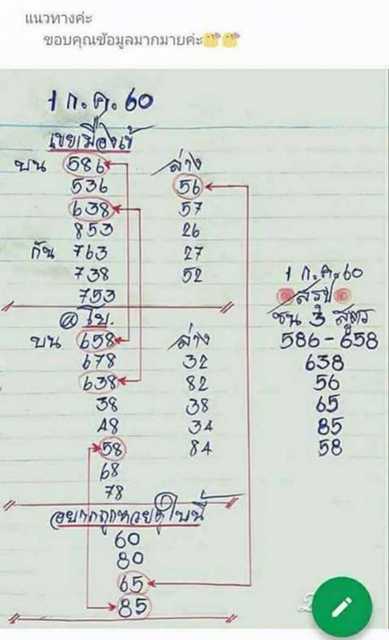 แนวทางค่ะ
ขอบคุณข้อมูลมากมายค่ะ
1 ก.ค.60
บน 586 ล่าง
536 56
638 57
853 26
กัน 763 27
738 52
753
บน 658 ล่าง
678 32
638 82
38 38
48 34
58 84
68
78
60
80
65
85
1 ก.ค.60
สรุป
ชน 3 สูตร
586-658
638
56
65
85
58